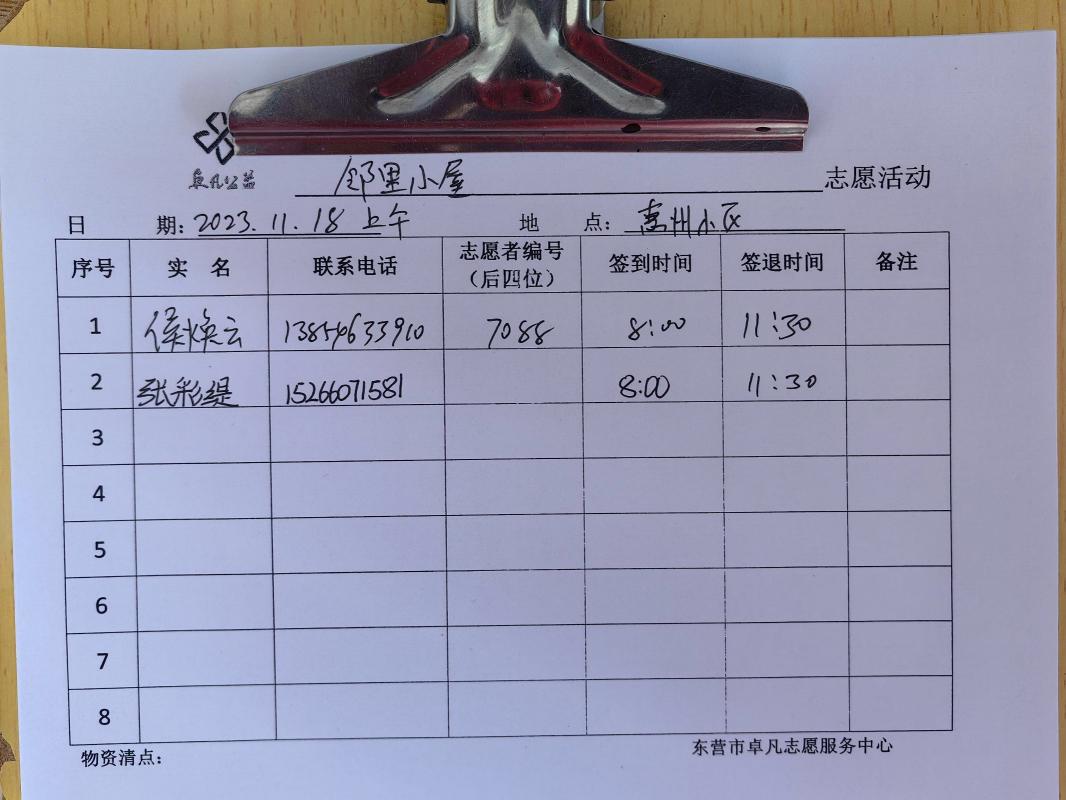 卓凡公益
邻里小屋 志愿活动
日 期：2023.11.18 上午 地 点：惠州小区
序号 实 名 联系电话 志愿者编号（后四位） 签到时间 签退时间 备注
1 侯焕云 13854633910 7088 8:00 11:30
2 张彩缇 15266071581 8:00 11:30
3
4
5
6
7
8
物资清点： 东营市卓凡志愿服务中心